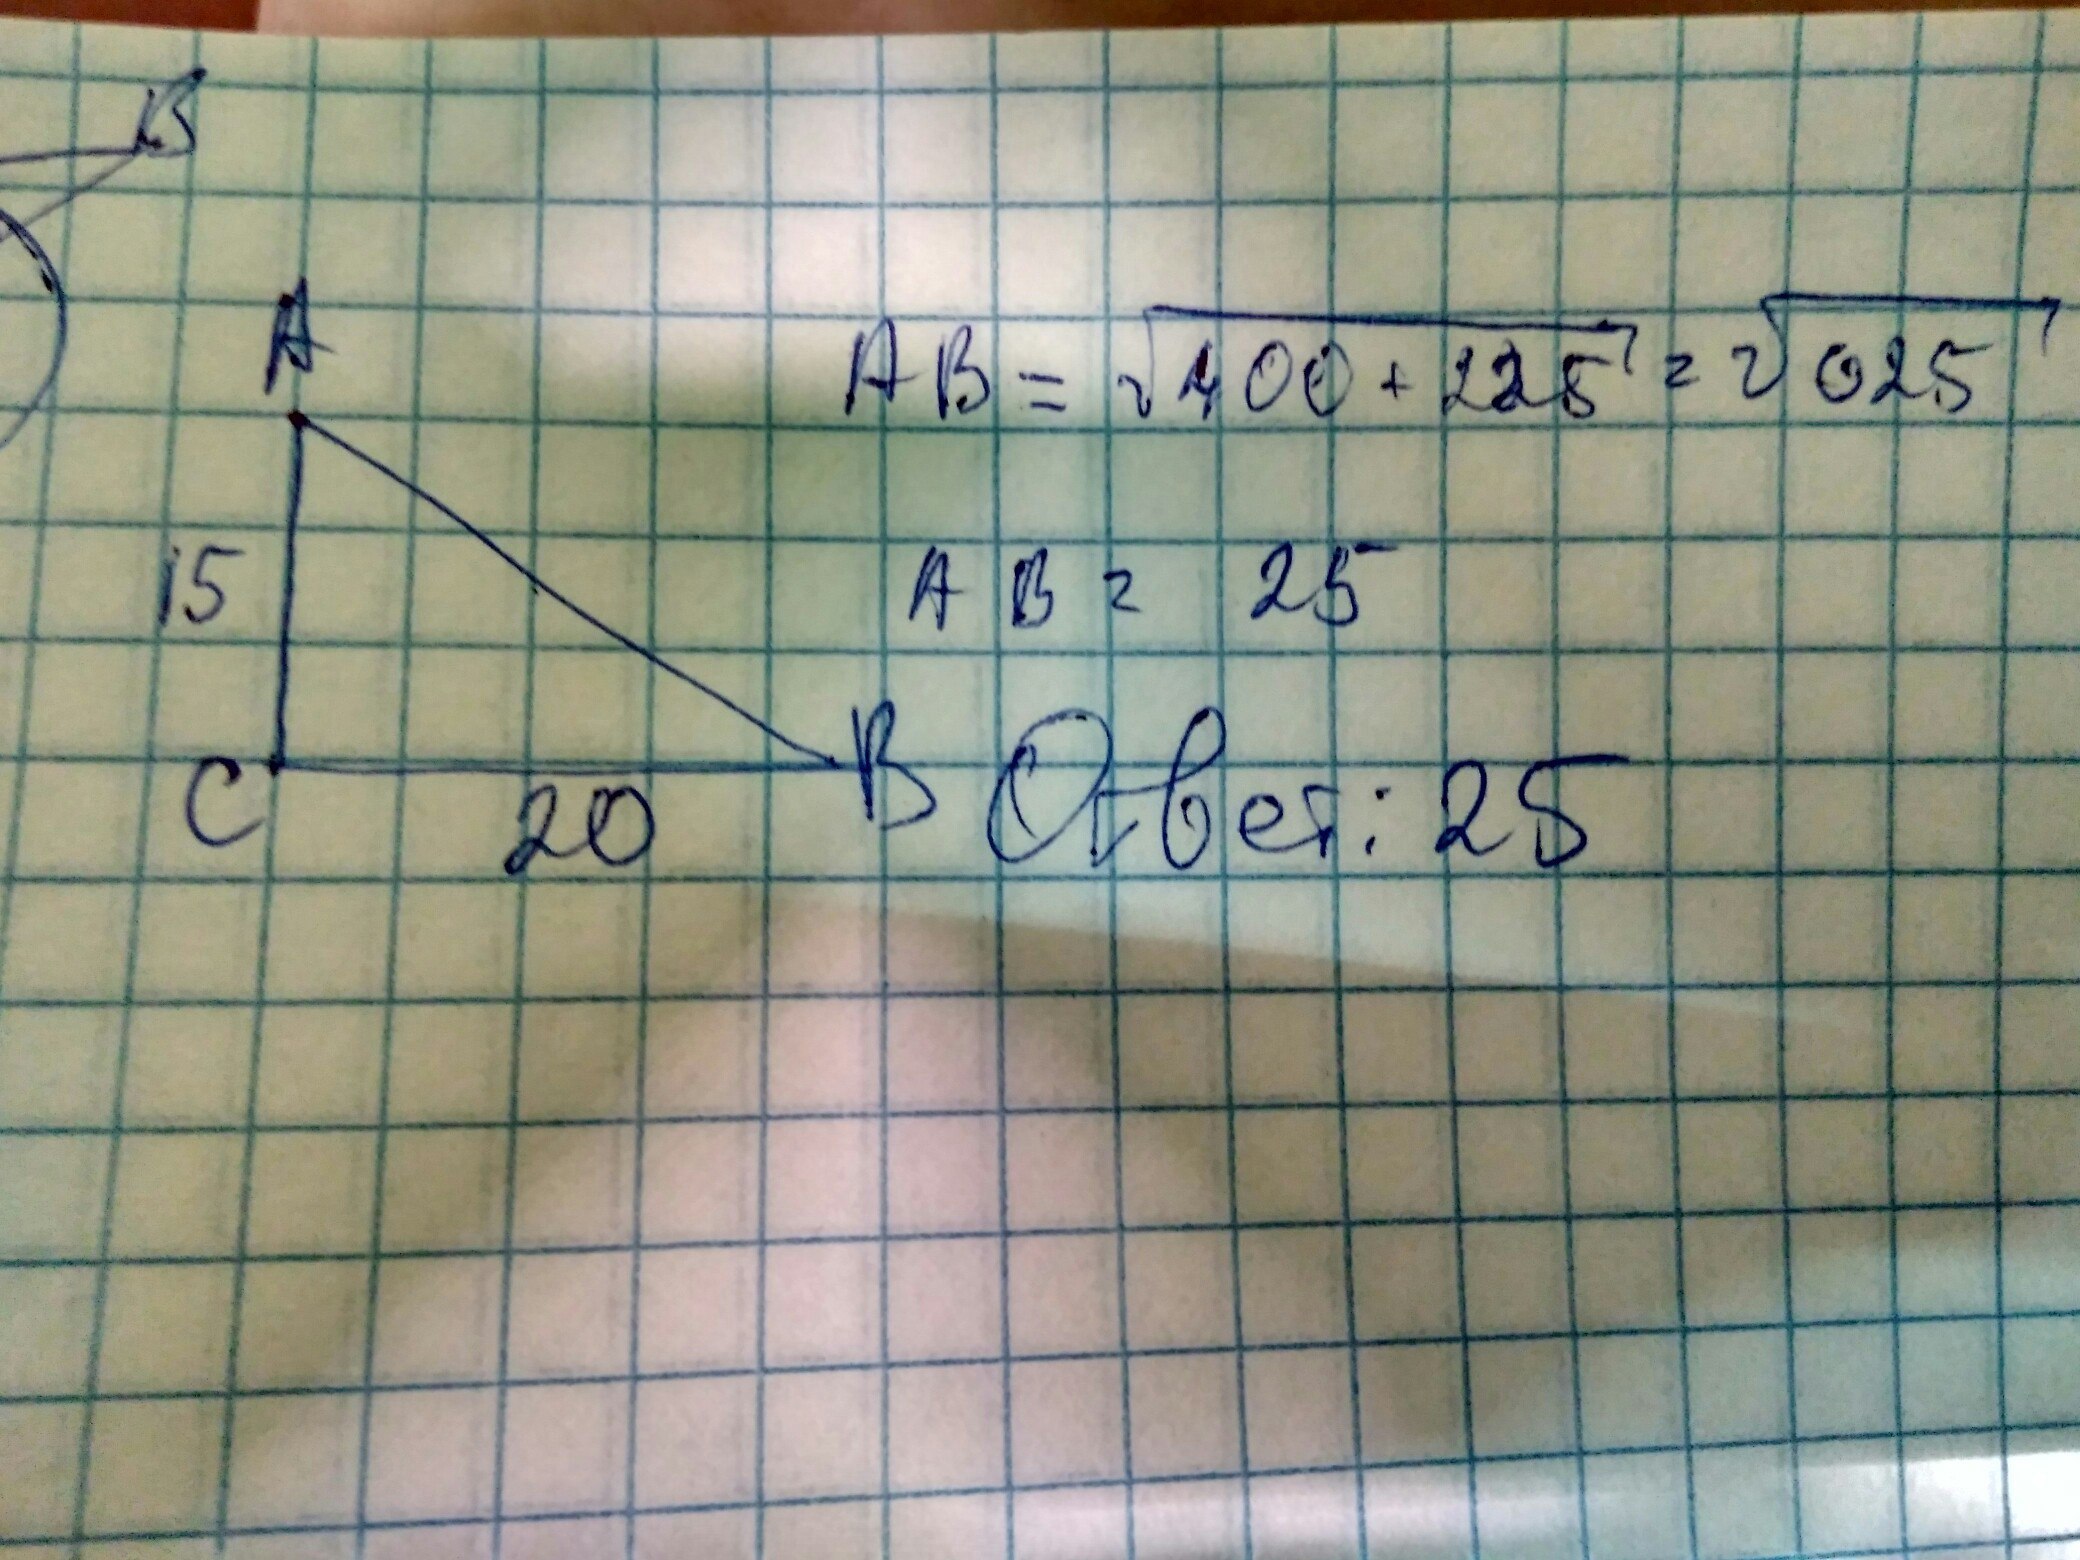 B
A
AB = √400 + 225 = √625
15
AB = 25
C
20
B
Ответ: 25